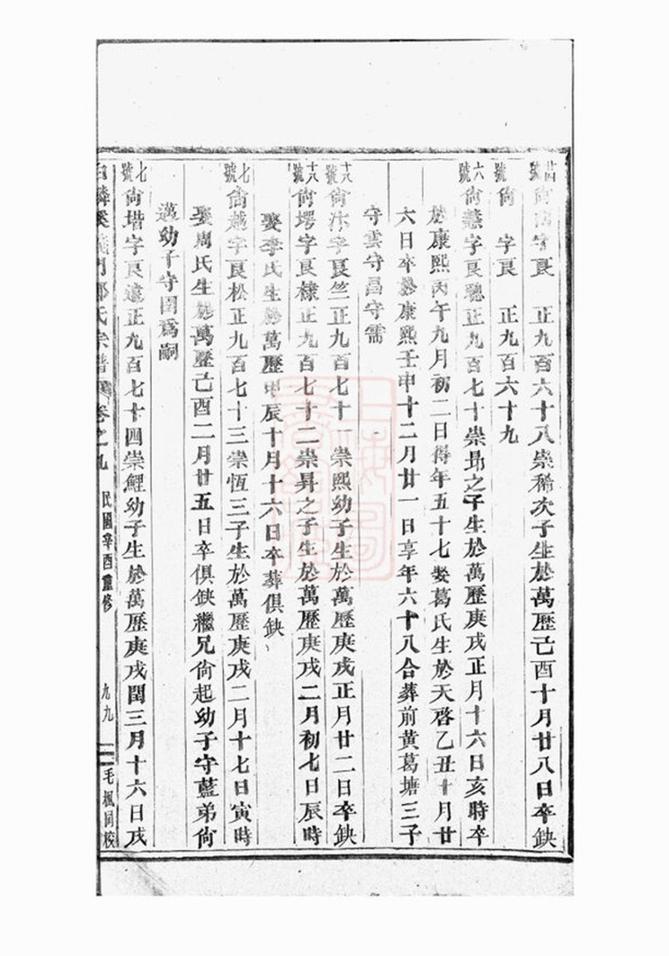 廿四號 尙 字艮 正九百六十八崇稀次子生於萬歷己酉十月廿八日卒缺
號 尙 字艮 正九百六十九
六號 尙慧字艮聽正九百七十崇昻之子生於萬歷庚戌正月十六日亥時卒
於康熙丙午九月初二日得年五十七娶葛氏生於天啓乙丑十月廿
六日卒於康熙壬申十二月廿一日享年六十八合葬前黃葛塘三子
守雲守昌守需
十八號 尙 字艮竺正九百七十一崇熙幼子生於萬歷庚戌正月廿二日卒缺
十八號 尙塄字艮棣正九百七十二崇昇之子生於萬歷庚戌二月初七日辰時
娶李氏生於萬歷甲辰十月十六日卒葬俱缺
七號 尙越字艮松正九百七十三崇恆三子生於萬歷庚戌二月十七日寅時
娶周氏生於萬歷己酉二月廿五日卒俱缺繼兄尙起幼子守藍弟尙
邁幼子守囝爲嗣
七號 尙堦字艮遠正九百七十四崇鯉幼子生於萬歷庚戌閏三月十六日戌
白麟溪義門鄭氏宗譜 卷之九 民國辛酉重修 九九 毛楓同校